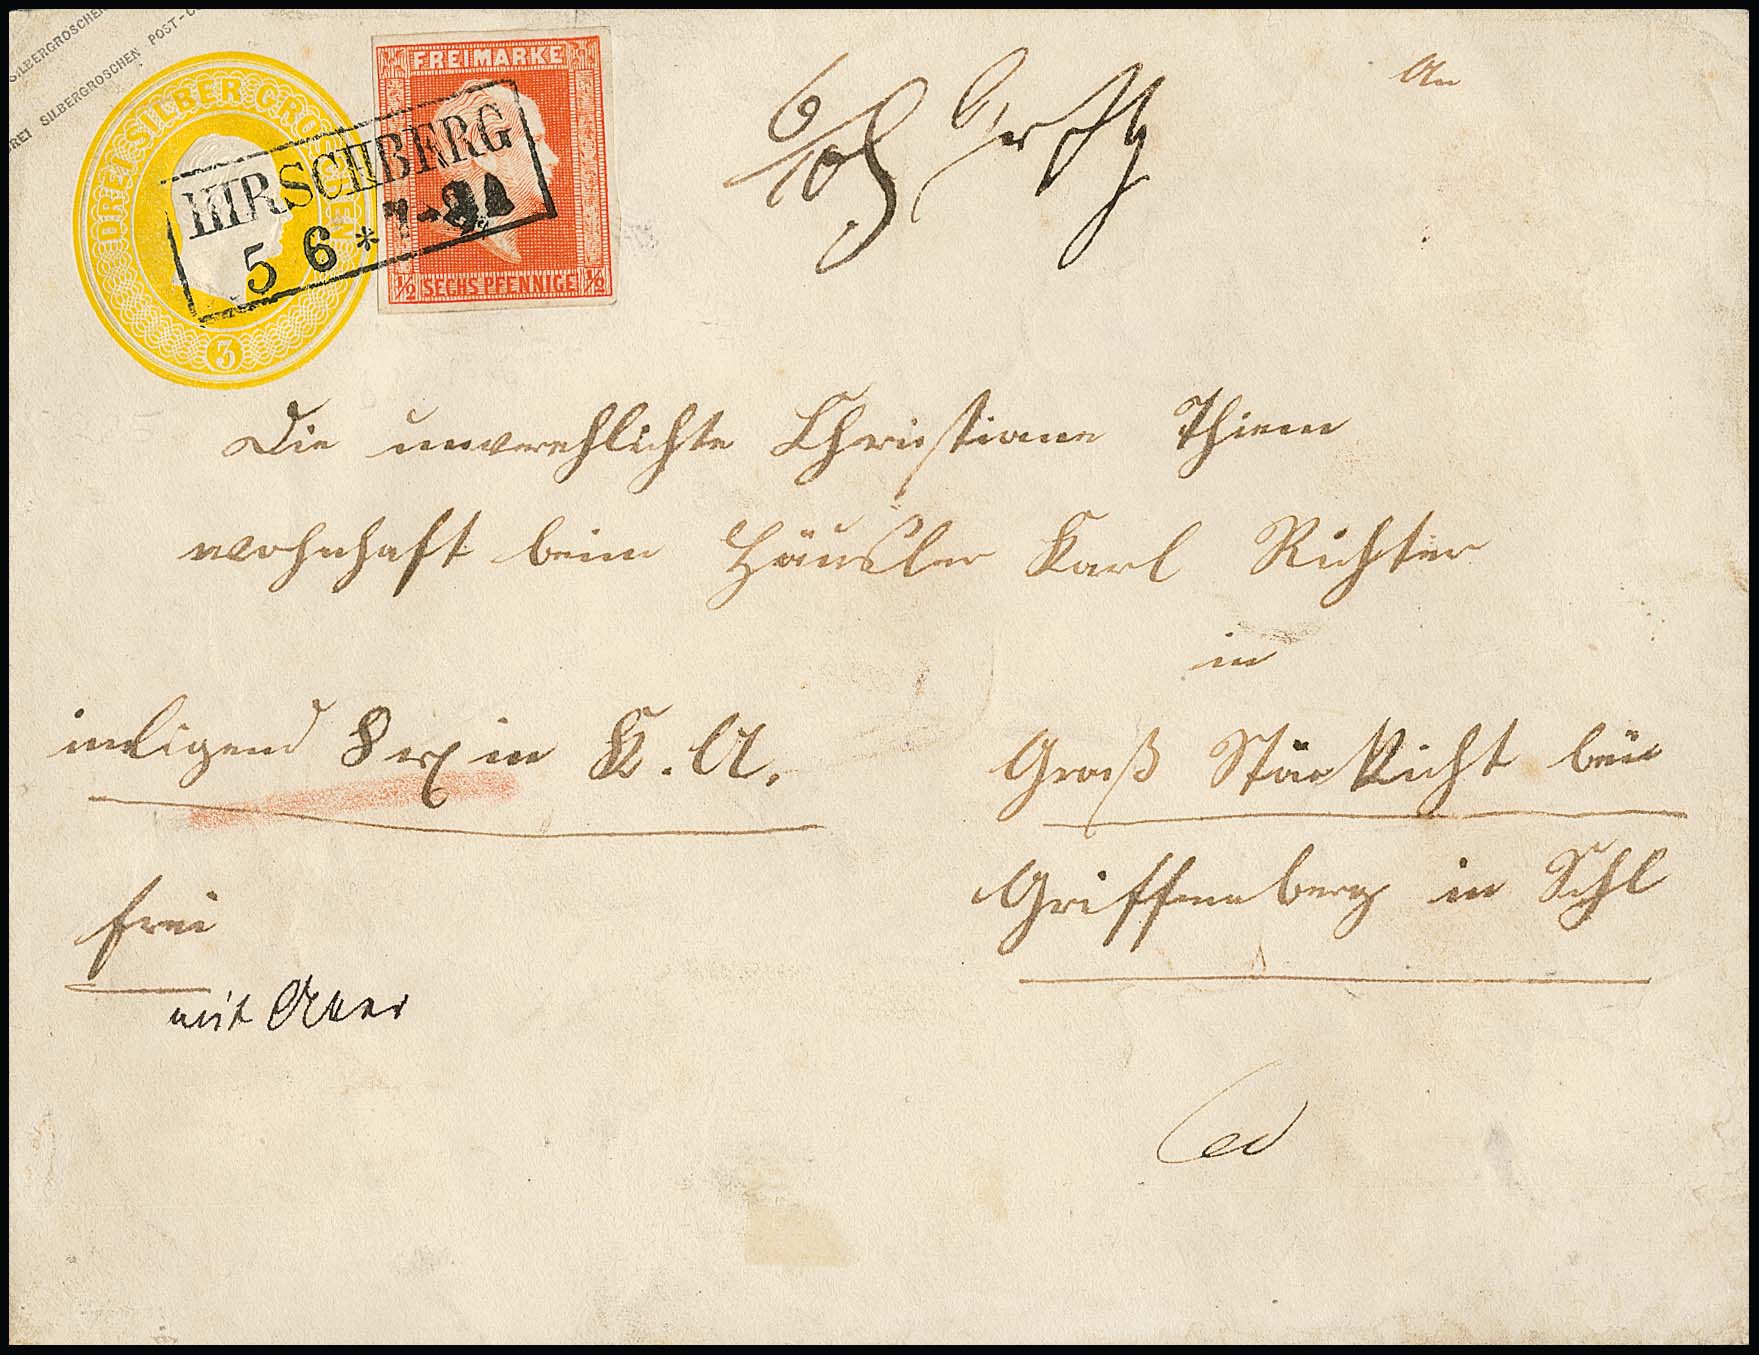 SILBERGROSCHEN
REI SILBERGROSCHEN POST-C
DREI SILBER GROSCHEN
3
FREIMARKE
½ SECHS PFENNIGE ½
HIRSCHBERG
5 6 * 7-8
6/10
An
Die unverehlichte Christiane Thiem
wohnhaft beim Häusler Karl Richter
in
inligend 8 rx in K. A.
Groß Stöckicht bei
Griffenberg in Schl
frei
mit